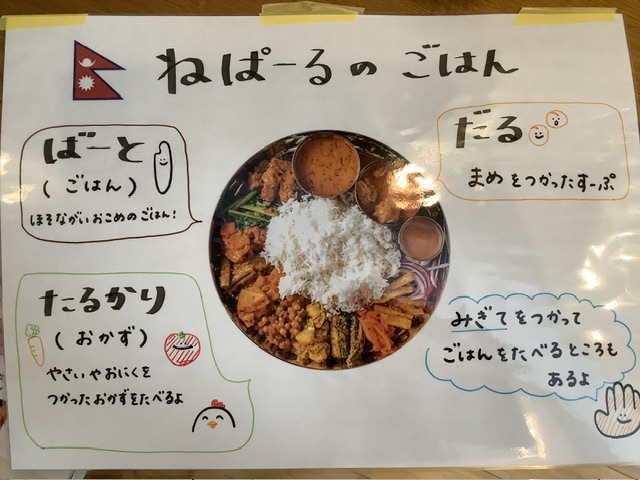 ねぱーるの ごはん
ばーと
(ごはん)
ほそながいおこめのごはん!
だる
まめをつかったすーぷ
たるかり
(おかず)
やさいやおにくを
つかったおかずをたべるよ
みぎてをつかって
ごはんをたべるところも
あるよ